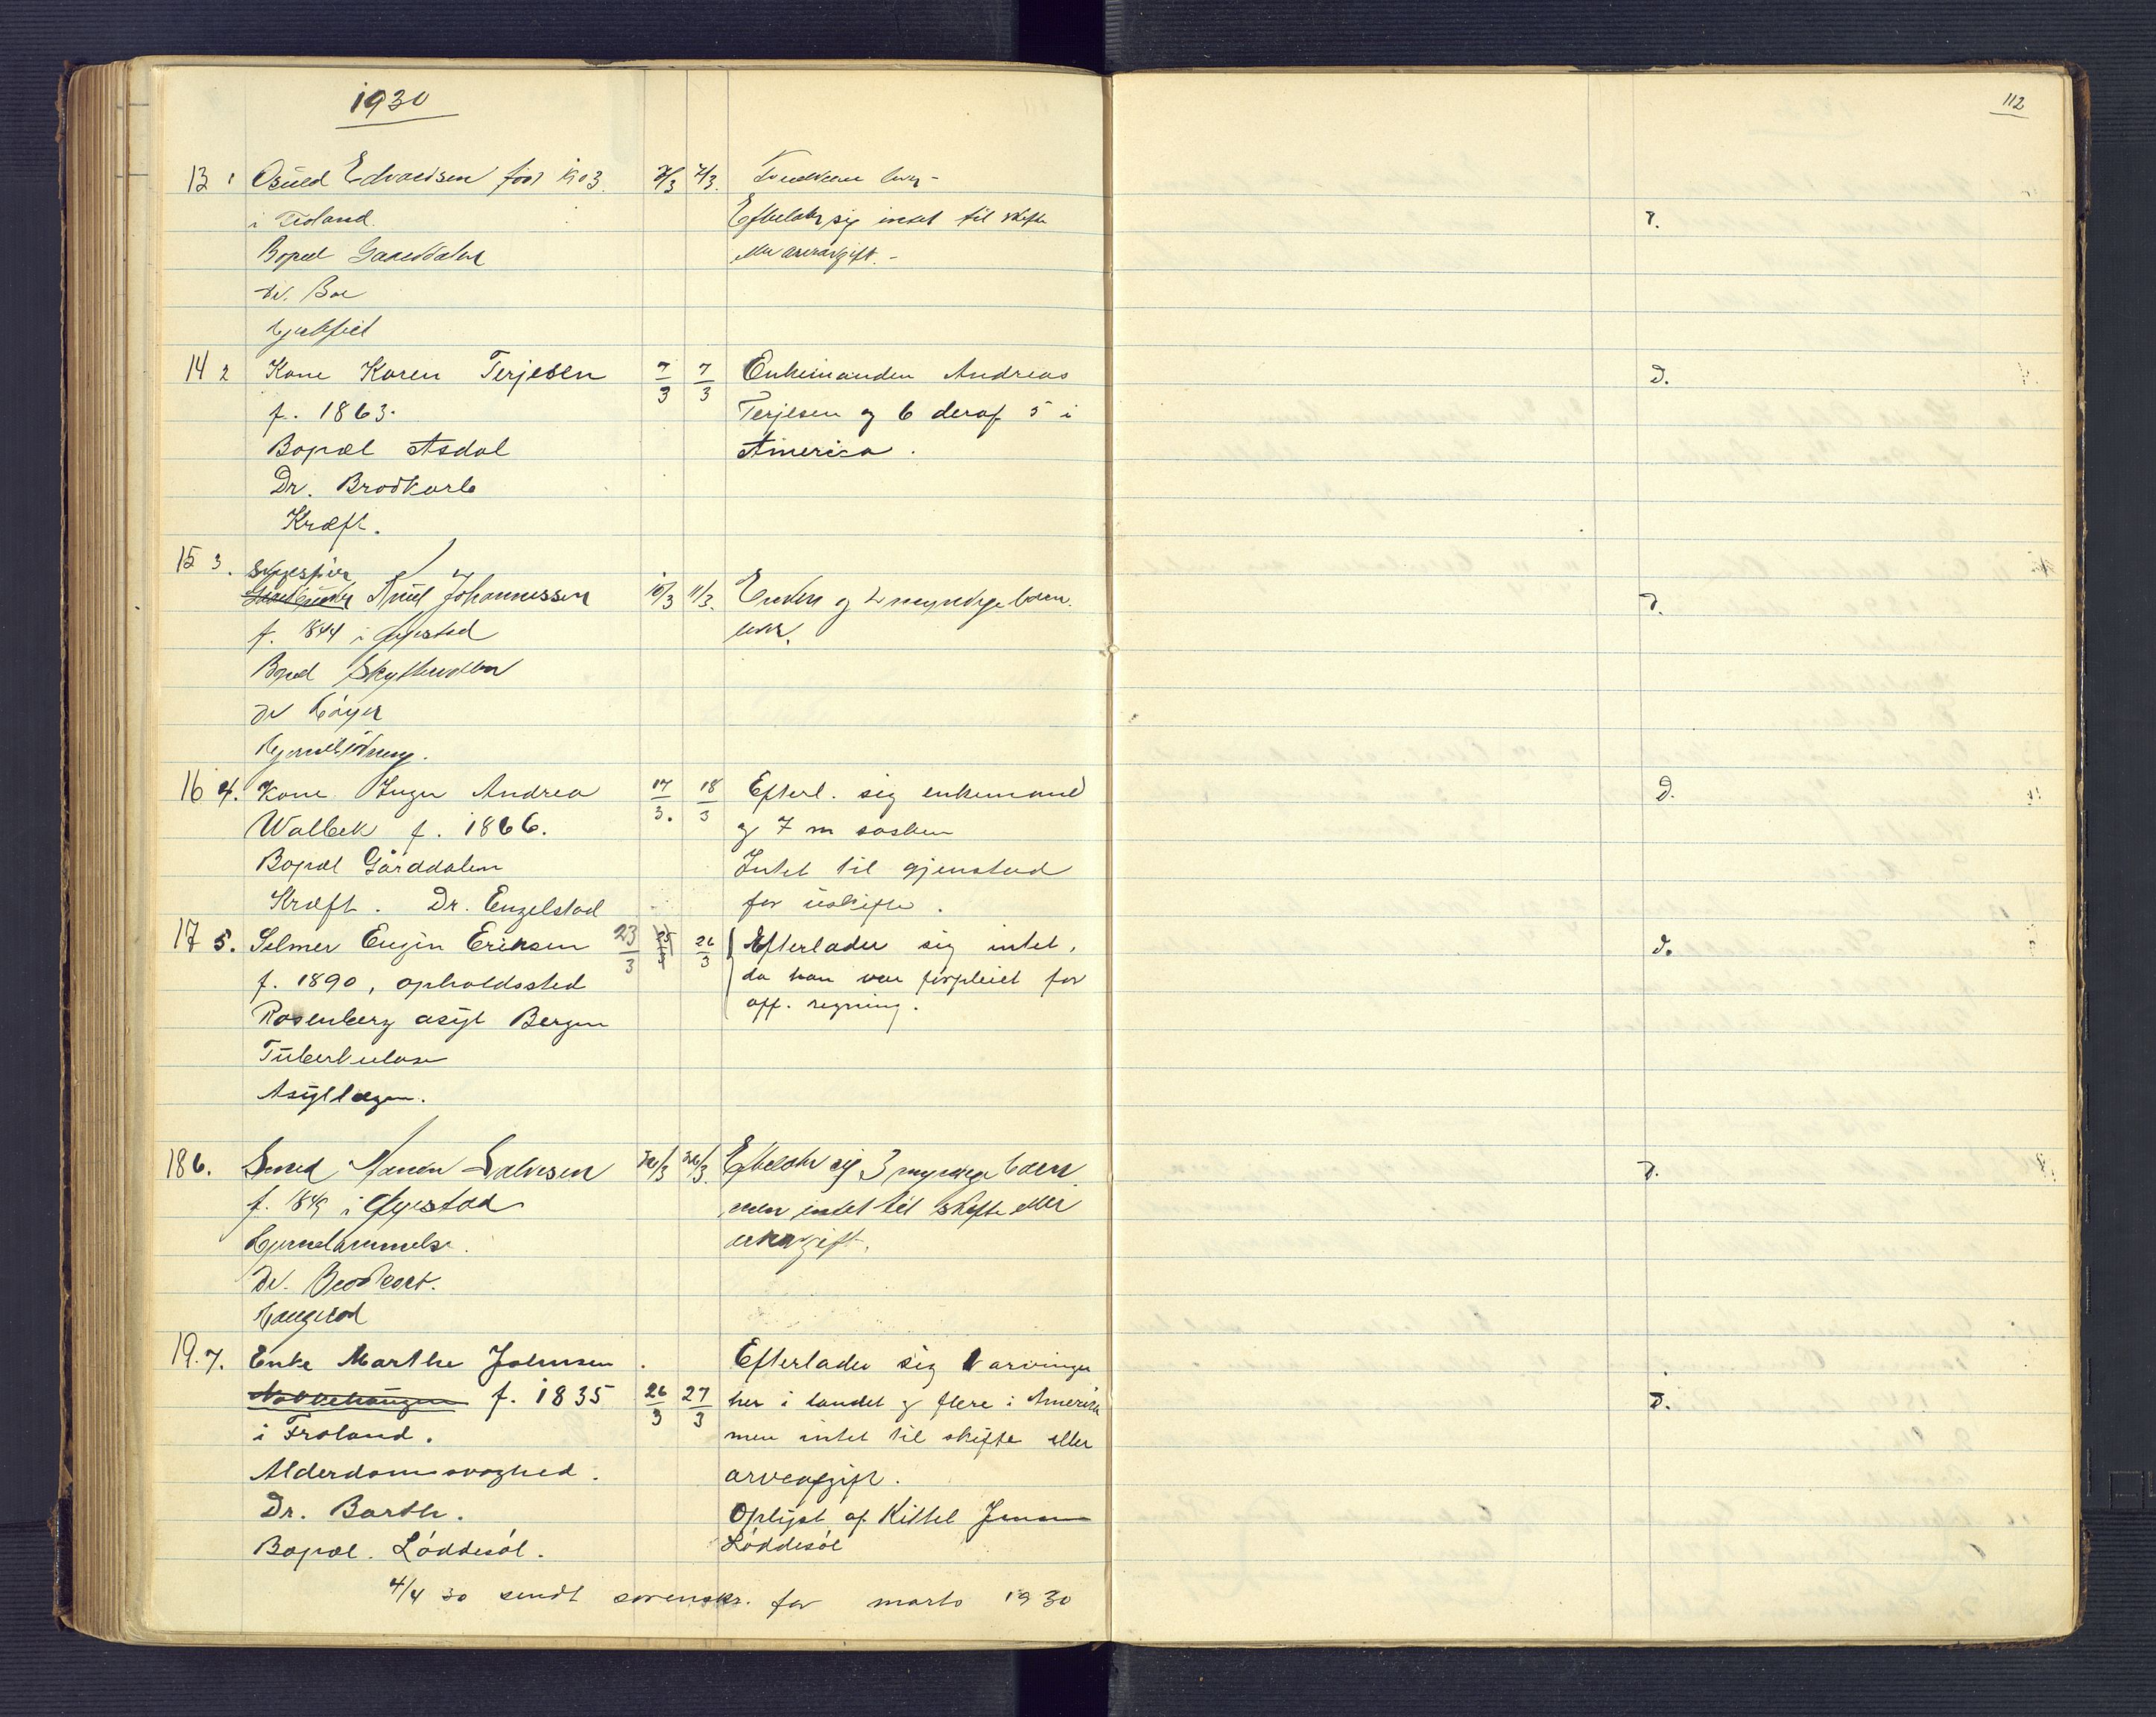 1930
112
13 1 Osuld Edvardsen født 1903. 7/3 7/3.
i Froland.
Efterlater sig intet til skifte
D.
Bopæl Gaarddalen
eller arveavgift. -
Dr. Boe
Hjertefeil
14 2 Kone Karen Terjesen 7/3 7/3 Enkemanden Andreas D.
f. 1863. Terjesen og 6 deraf 5 i
Bopæl Asdal America.
Dr. Brodkorb
Kræft.
15 3.
Knut Johannessen 10/3 11/3. Enken og 4 myndige børn D.
f. 1844 i Øyestad lever.
Bopæl
Dr Høyer
Hjerneblødning.
16 4. Kone Inga Andrea 17/3. 18/3 Efterl. sig enkemand D.
Walbek f. 1866. og 7 m søsken
Bopæl Gårddalen Intet til gjenstand
Kræft. Dr. Engelstad for uskifte.
17 5. Selmer Eugin Eriksen 23/3 25/3 26/3 Efterlader sig intet, D.
f. 1890, opholdssted da han var forpleiet for
Rosenberg asyl Bergen off. regning.
Tuberkulose
Asyllægen.
18 6. Smed Salvesen 26/3 26/3. Efterlater sig 3 myndige børn D.
f. 1849 i Øyestad men intet til skifte eller
Hjernelammelse. arveavgift.
Dr. Brodkorb.
Haugerød
19. 7. Enke Marthe Johnsen Efterlader sig 1 arvinger
f. 1835 26/3 27/3 her i landet og flere i Amerika D.
i Froland. men intet til skifte eller
Alderdomssvaghed. arveafgift.
Dr. Barth. Oplyst af Kittel Jensen
Bopæl. Løddesøl. Løddesøl
4/4 30 sendt sorenskr. for marts 1930